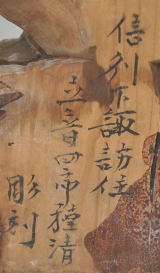 信州下諏訪住
立川音四郎種清
彫刻